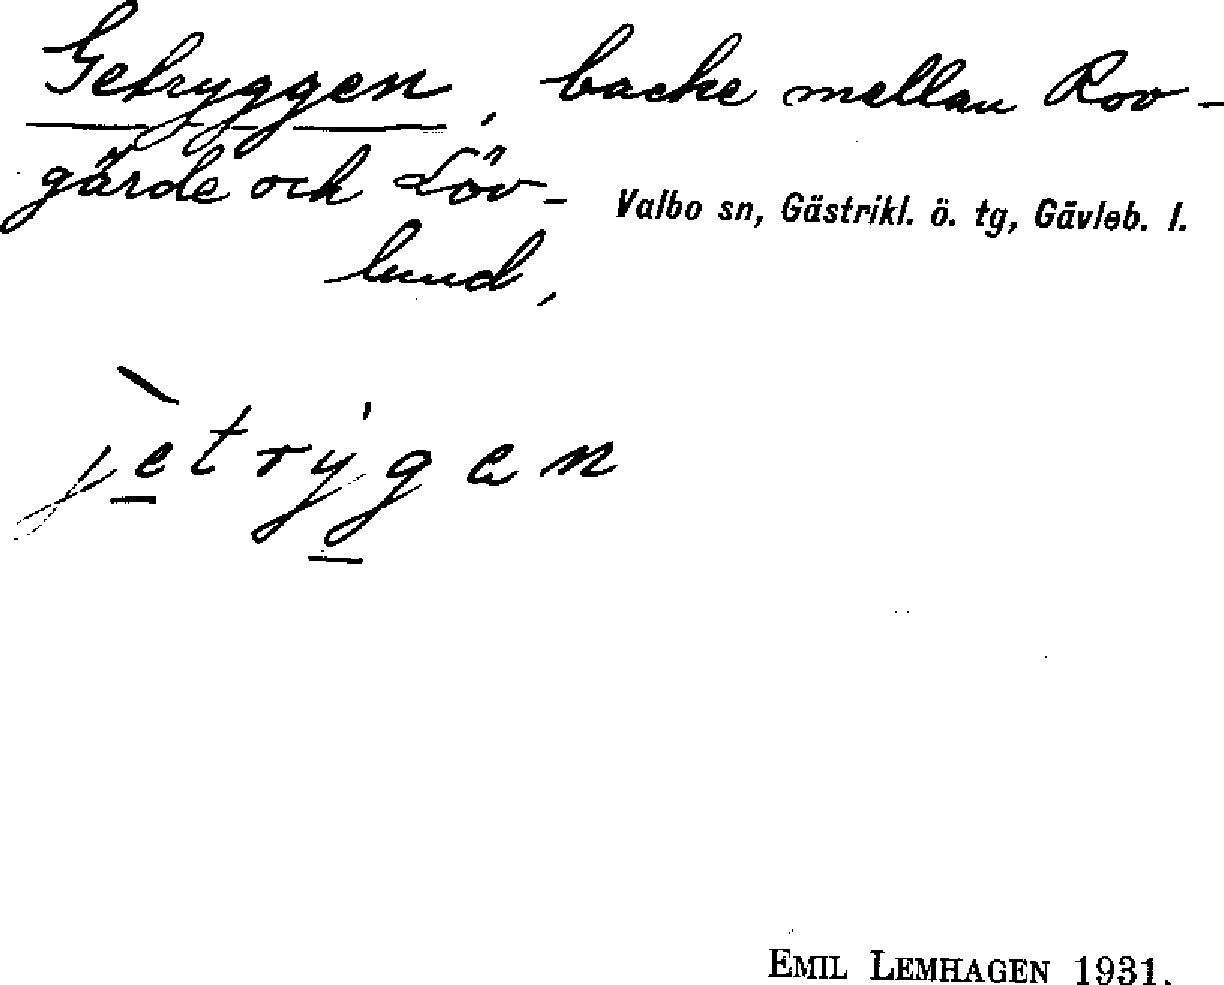 Getryggen, backe mellan Rov-
gärde och Löv-
lund,
Valbo sn, Gästrikl. ö. tg, Gävleb. l.
jètrýgen
EMIL LEMHAGEN 1931.